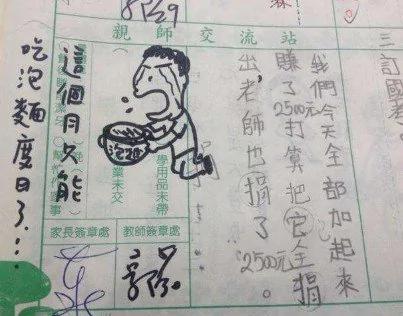 三訂國
親師交流站
我們今天全部加起來
賺了2500元打算把它全捐
出，老師也捐了2500元。
這個月只能
吃泡麵度日了…
泡麵
學用品未帶
業未交
家長簽章處
教師簽章處